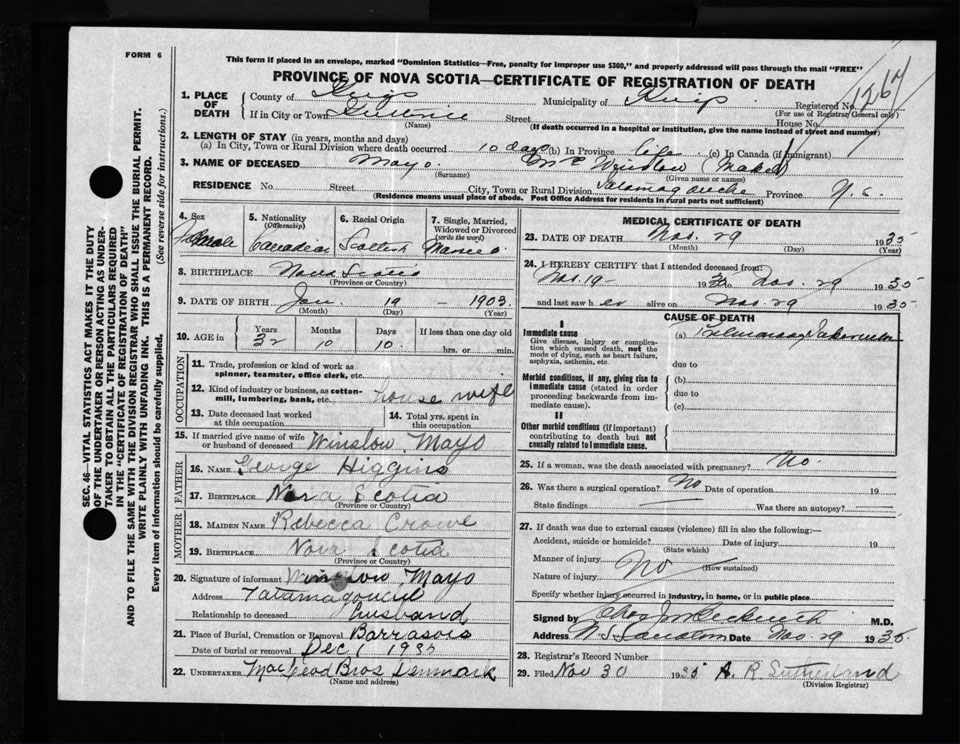 FORM 6
This form if placed in an envelope, marked "Dominion Statistics—Free, penalty for improper use $300," and properly addressed will pass through the mail "FREE"
PROVINCE OF NOVA SCOTIA—CERTIFICATE OF REGISTRATION OF DEATH
1. PLACE OF DEATH
County of Kings Municipality of Kings Registered No. 1267
(For use of Registrar General only)
If in City or Town Street House No.
(Name) (If death occurred in a hospital or institution, give the name instead of street and number)
2. LENGTH OF STAY (in years, months and days)
(a) In City, Town or Rural Division where death occurred 10 days (b) In Province life (c) In Canada (if immigrant)
3. NAME OF DECEASED Mayo Mrs Winslow (Mabel)
(Surname) (Given name or names)
RESIDENCE No. Street City, Town or Rural Division Tatamagouche Province N.S.
(Residence means usual place of abode. Post Office Address for residents in rural parts not sufficient)
4. Sex Female
5. Nationality (Citizenship) Canadian
6. Racial Origin Scottish
7. Single, Married, Widowed or Divorced (write the word) Married
8. BIRTHPLACE Nova Scotia
(Province or Country)
9. DATE OF BIRTH Jan. 19 - 1903
(Month) (Day) (Year)
10. AGE in Years 32 Months 10 Days 10 If less than one day old hrs. or min.
OCCUPATION
11. Trade, profession or kind of work as spinner, teamster, office clerk, etc.
12. Kind of industry or business, as cotton-mill, lumbering, bank, etc. house wife
13. Date deceased last worked at this occupation
14. Total yrs. spent in this occupation
15. If married give name of wife or husband of deceased Winslow Mayo
FATHER
16. NAME George Higgins
17. BIRTHPLACE Nova Scotia
(Province or Country)
MOTHER
18. MAIDEN NAME Rebecca Crowe
19. BIRTHPLACE Nova Scotia
(Province or Country)
20. Signature of informant Winslow Mayo
Address Tatamagouche
Relationship to deceased husband
21. Place of Burial, Cremation or Removal Barrasois
Date of burial or removal Dec 1 1935
22. UNDERTAKER MacLeod Bros Denmark
(Name and address)
MEDICAL CERTIFICATE OF DEATH
23. DATE OF DEATH Nov. 29 1935
(Month) (Day) (Year)
24. I HEREBY CERTIFY that I attended deceased from:
Nov. 19 - 1935 to Nov. 29 1935
and last saw h er alive on Nov. 29 1935
CAUSE OF DEATH
I
Immediate cause
Give disease, injury or complication which caused death, not the mode of dying, such as heart failure, asphyxia, asthenia, etc.
(a) Pulmonary Tuberculosis
due to
Morbid conditions, if any, giving rise to immediate cause (stated in order proceeding backwards from immediate cause).
(b)
due to
(c)
II
Other morbid conditions (if important) contributing to death but not causally related to immediate cause.
25. If a woman, was the death associated with pregnancy? No
26. Was there a surgical operation? No Date of operation 19
State findings Was there an autopsy?
27. If death was due to external causes (violence) fill in also the following:—
Accident, suicide or homicide? Date of injury 19
(State which)
Manner of injury No
(How sustained)
Nature of injury
Specify whether injury occurred in industry, in home, or in public place
Signed by M.D.
Address Date Nov. 29 1935
28. Registrar's Record Number
29. Filed Nov 30 1935 A. R Sutherland
(Division Registrar)
SEC. 46—VITAL STATISTICS ACT MAKES IT THE DUTY
OF THE UNDERTAKER OR PERSON ACTING AS UNDER-
TAKER TO OBTAIN ALL THE PARTICULARS REQUIRED
IN THE "CERTIFICATE OF REGISTRATION OF DEATH"
AND TO FILE THE SAME WITH THE DIVISION REGISTRAR WHO SHALL ISSUE THE BURIAL PERMIT.
WRITE PLAINLY WITH UNFADING INK. THIS IS A PERMANENT RECORD.
Every item of information should be carefully supplied. (See reverse side for instructions.)